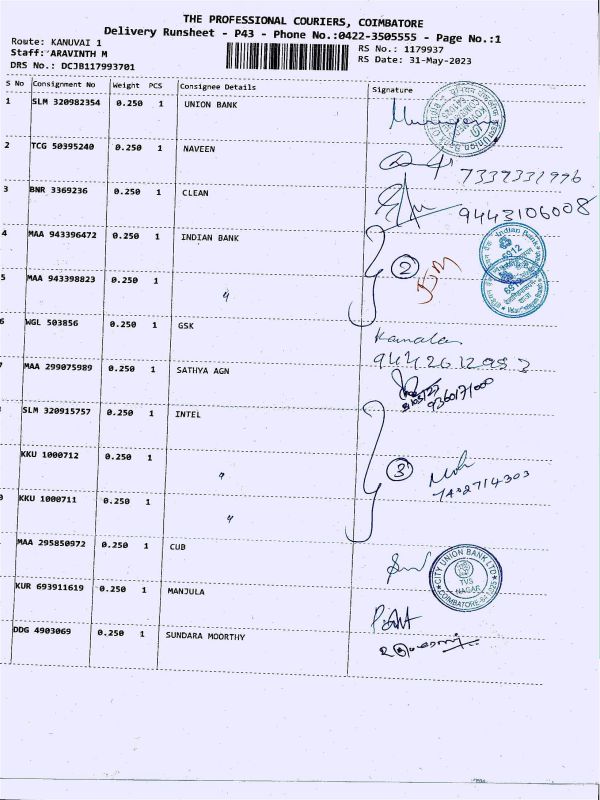 THE PROFESSIONAL COURIERS, COIMBATORE
Delivery Runsheet - P43 - Phone No.:0422-3505555 - Page No.:1
Route: KANUVAI 1
Staff: ARAVINTH M
DRS No.: DCJB117993701
RS No.: 1179937
RS Date: 31-May-2023
S No Consignment No Weight PCS Consignee Details Signature
1 SLM 320982354 0.250 1 UNION BANK
2 TCG 50395240 0.250 1 NAVEEN 7339331996
3 BNR 3369236 0.250 1 CLEAN 9443106008
4 MAA 943396472 0.250 1 INDIAN BANK
2
5 MAA 943398823 0.250 1 "
6 WGL 503856 0.250 1 GSK Kamala
MAA 299075989 0.250 1 SATHYA AGN
SLM 320915757 0.250 1 INTEL
KKU 1000712 0.250 1 "
3
KKU 1000711 0.250 1 "
MAA 295850972 0.250 1 CUB
CITY UNION BANK LTD
TVS
NAGAR
COIMBATORE-641 025
KUR 693911619 0.250 1 MANJULA
DDG 4903069 0.250 1 SUNDARA MOORTHY